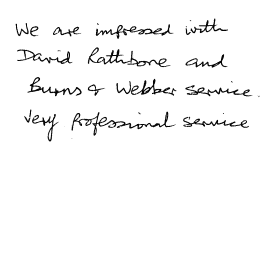 We are impressed with
David Rathbone and
Burns & Webber service.
Very Professional service